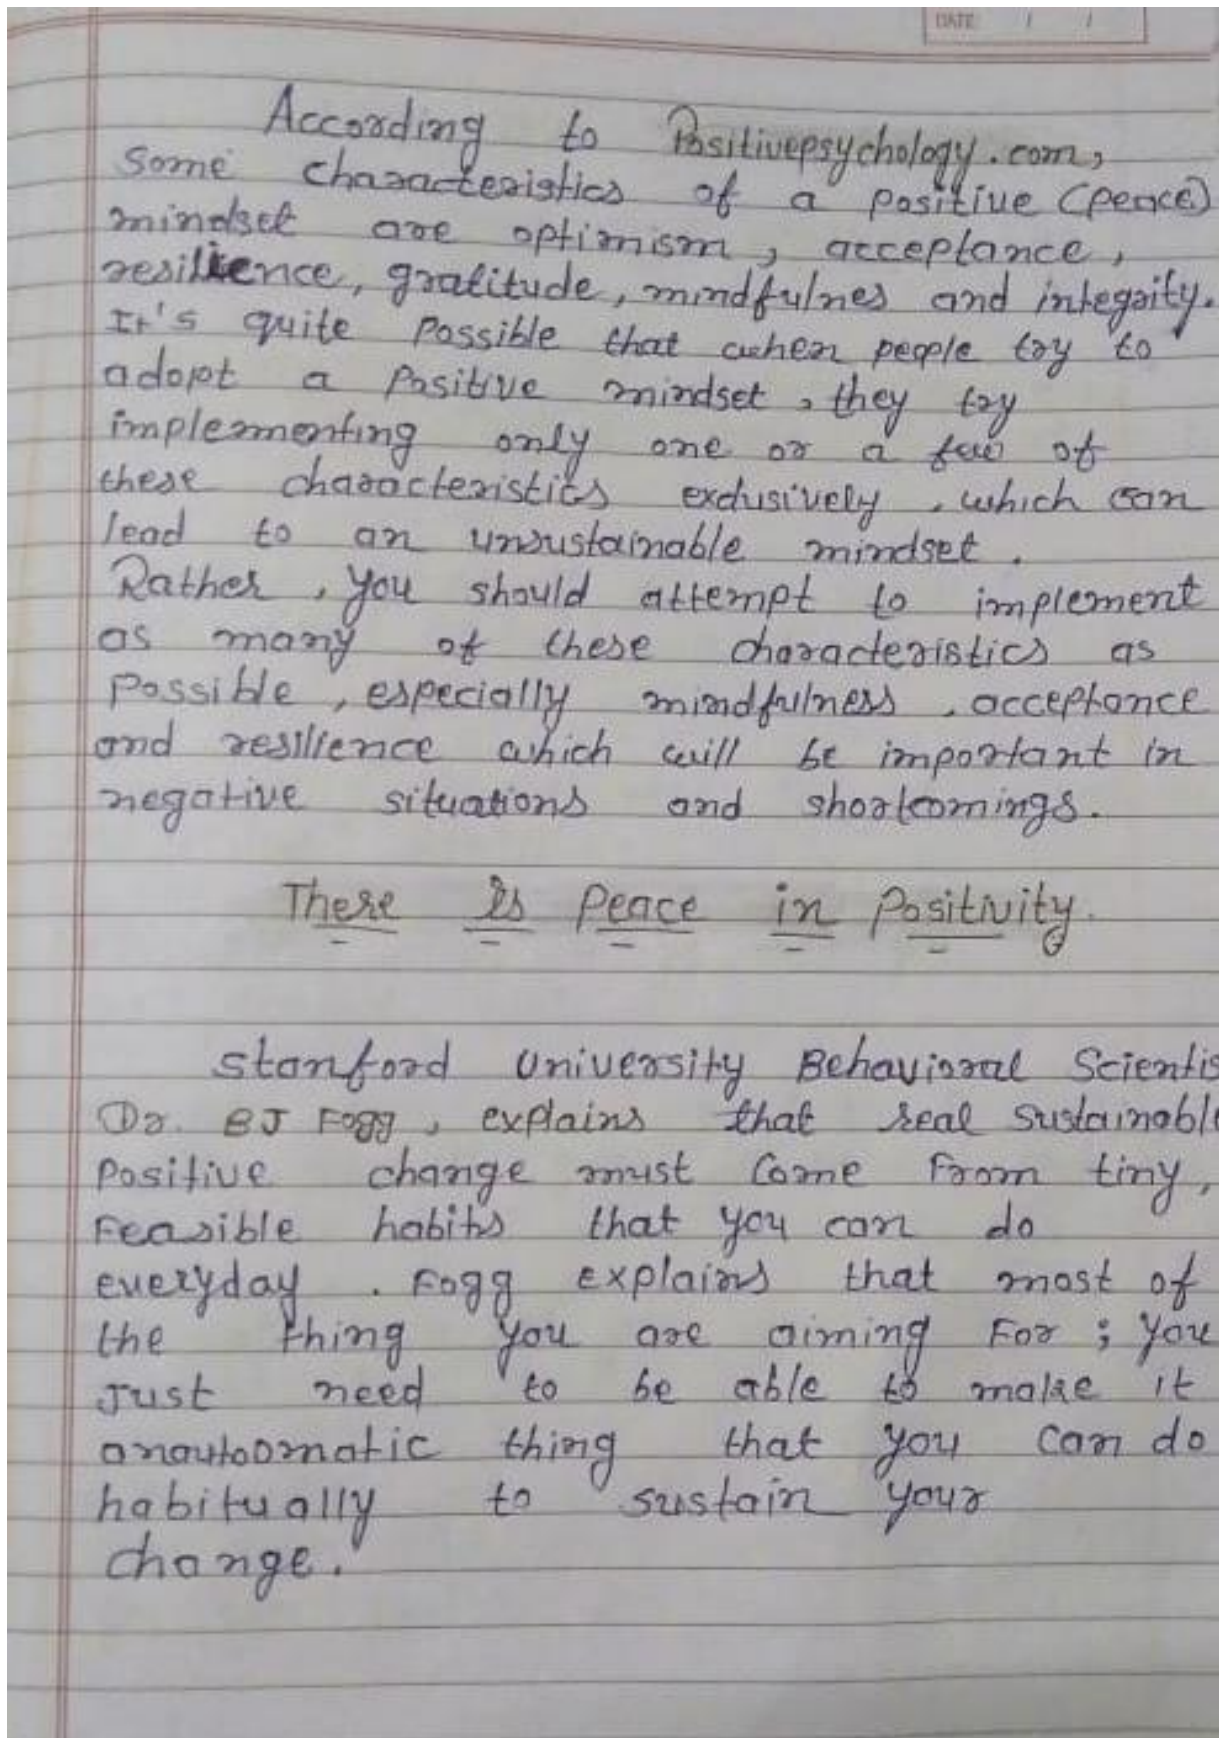 DATE / /
According to Positivepsychology.com,
some characteristics of a positive (peace)
mindset are optimism, acceptance,
resilience, gratitude, mindfulnes and integrity.
It's quite possible that when people try to
adopt a positive mindset, they try
implementing only one or a few of
these characteristics exclusively, which can
lead to an unsustainable mindset.
Rather, you should attempt to implement
as many of these characteristics as
possible, especially mindfulness, acceptance
and resilience which will be important in
negative situations and shortcomings.
There is Peace in Positivity.
Stanford University Behavioral Scientis
Dr. BJ Fogg, explains that real sustainable
Positive change must come from tiny,
Feasible habits that you can do
everyday. Fogg explains that most of
the thing you are aiming For; you
Just need to be able to make it
anautoomatic thing that you can do
habitually to sustain your
change.